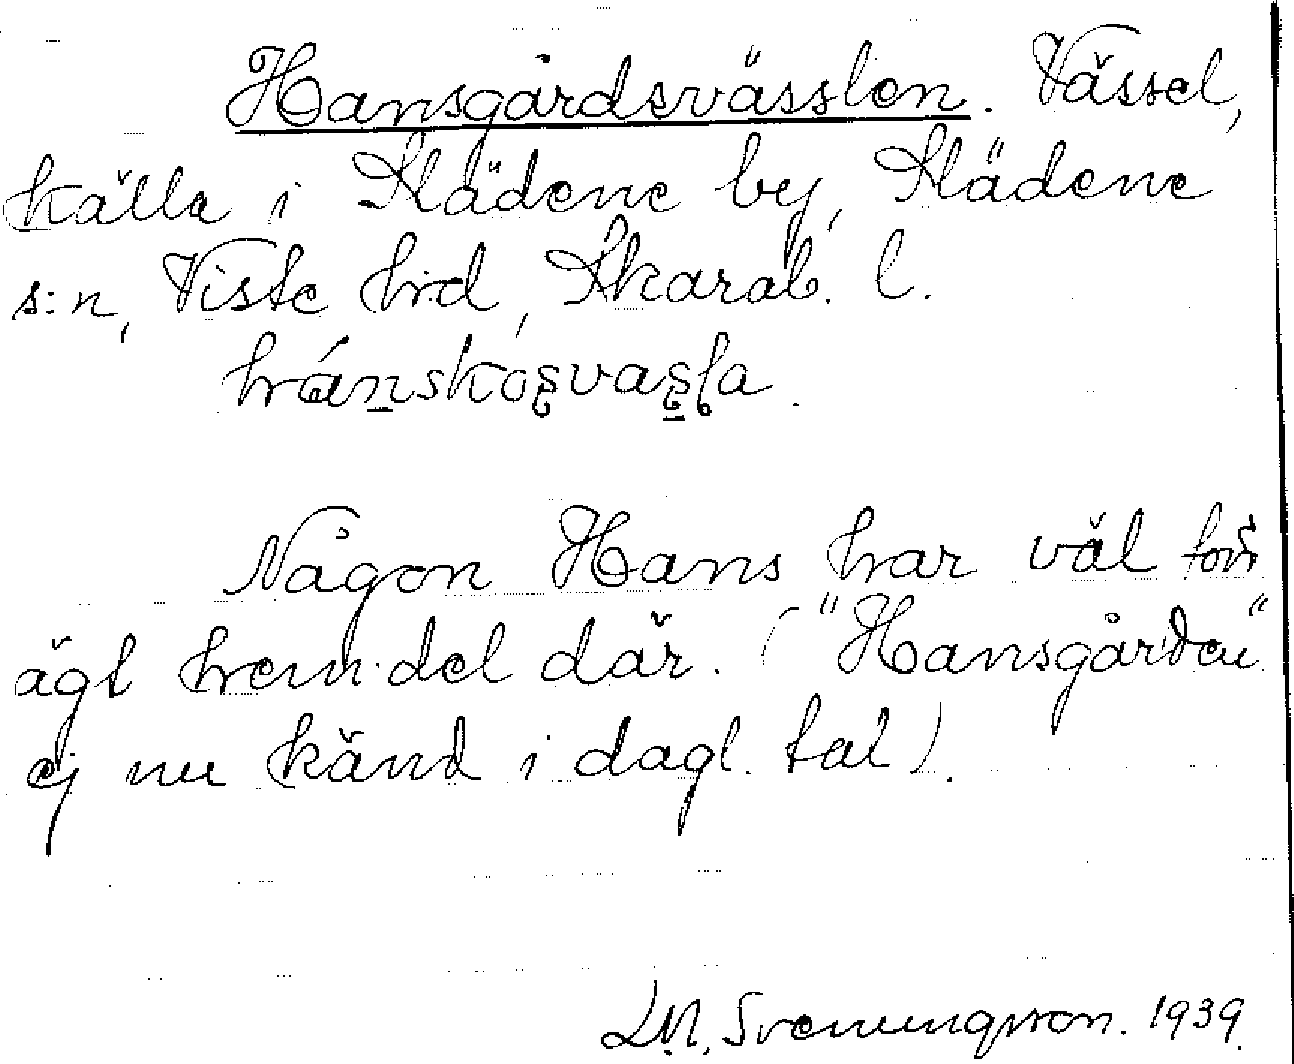 Hansgårdsvässlen. Vässel,
källa i Slädene by, Slädene
s:n, Viste hd, Skarab. l.
hánskósvasla.
Någon Hans har väl förr
ägt hem.del där. ("Hansgården"
ej nu känd i dagl. tal).
L.M. Svenungsson. 1939.